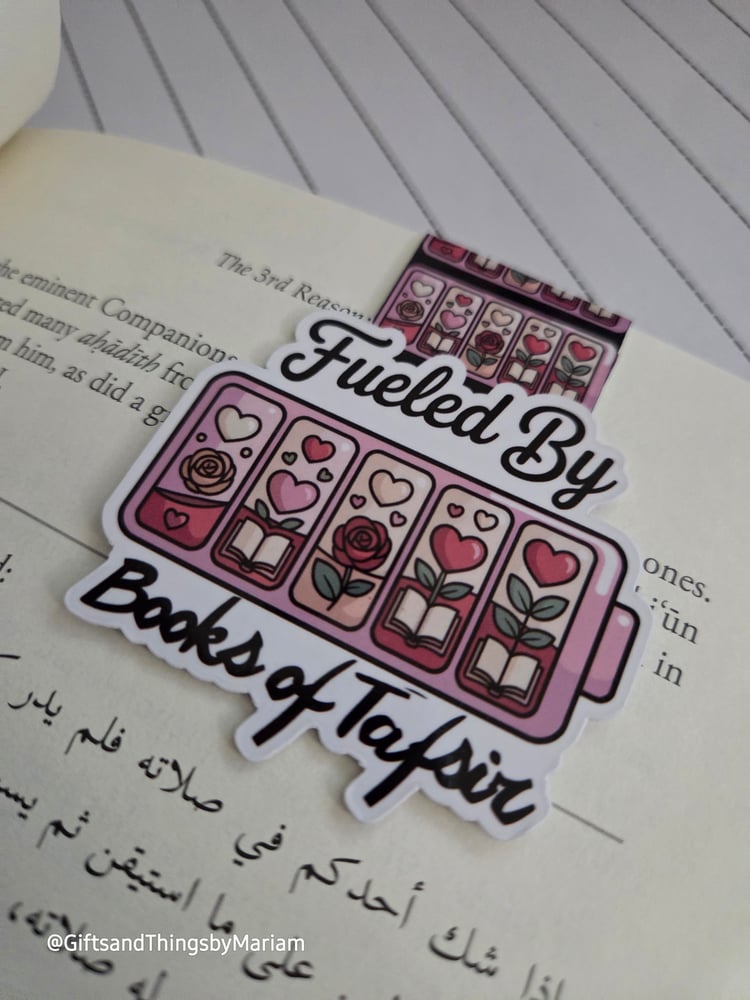 The 3rd Reason
the eminent Companions
many aḥādīth
him, as did a
Fueled By
Books of Tafsir
ones.
in
شك أحدكم في صلاته فلم يدر
على ما استيقن ثم
صلاته،
@GiftsandThingsbyMariam